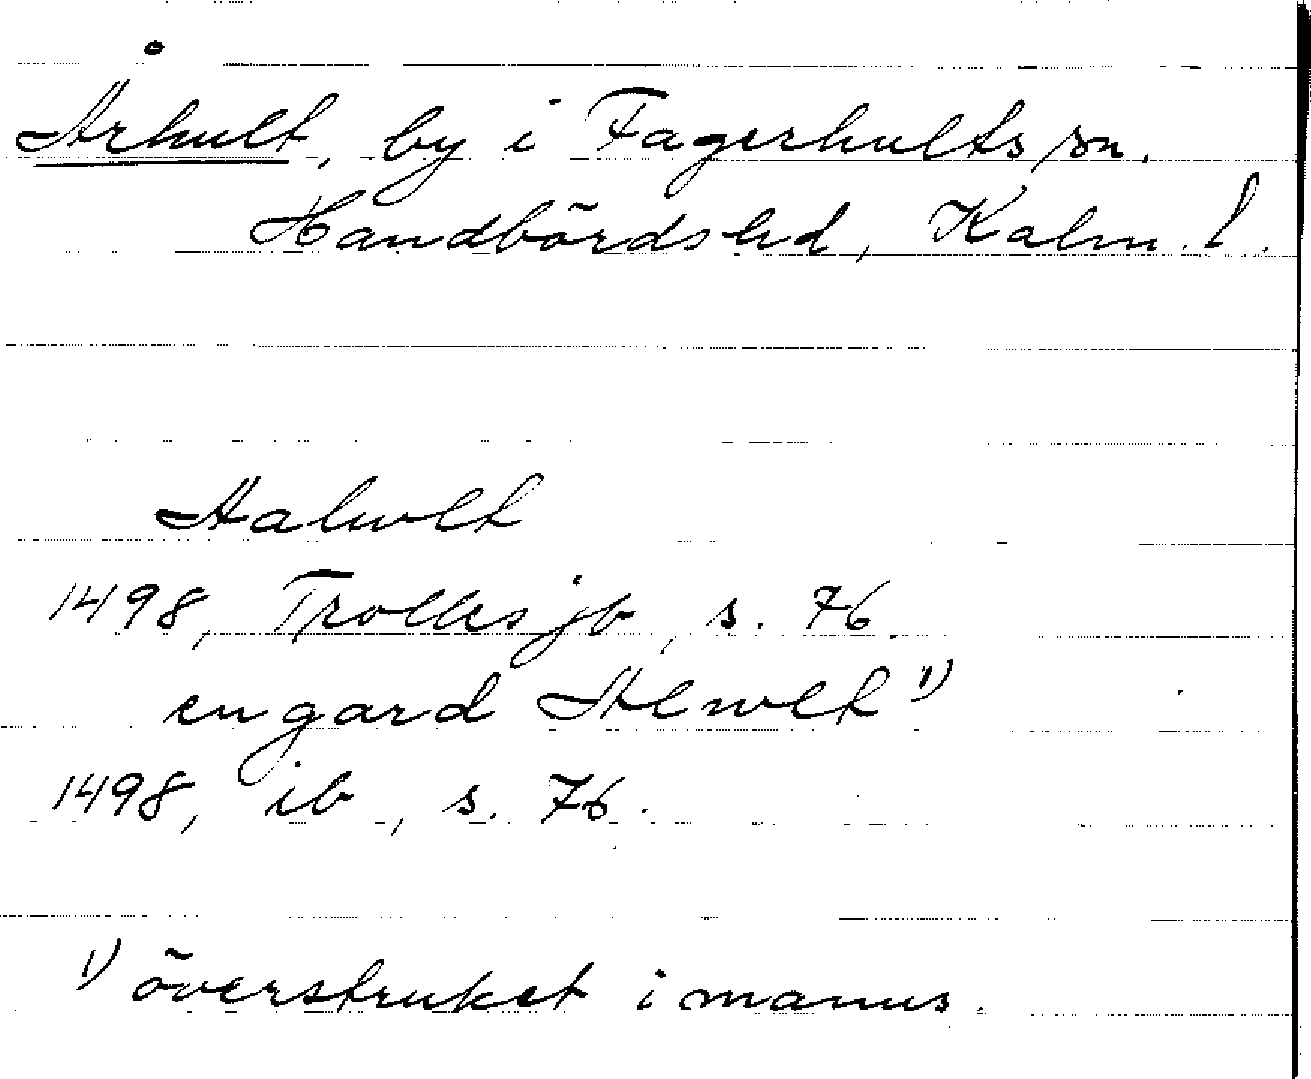 Århult, by i Fagerhults sn.
Handbörds hd, Kalm. l.
Aahwlt
1498, Trolles jb, s. 76.
en gard Alwlt 1)
1498, ib, s. 76.
1) överstruket i manus.